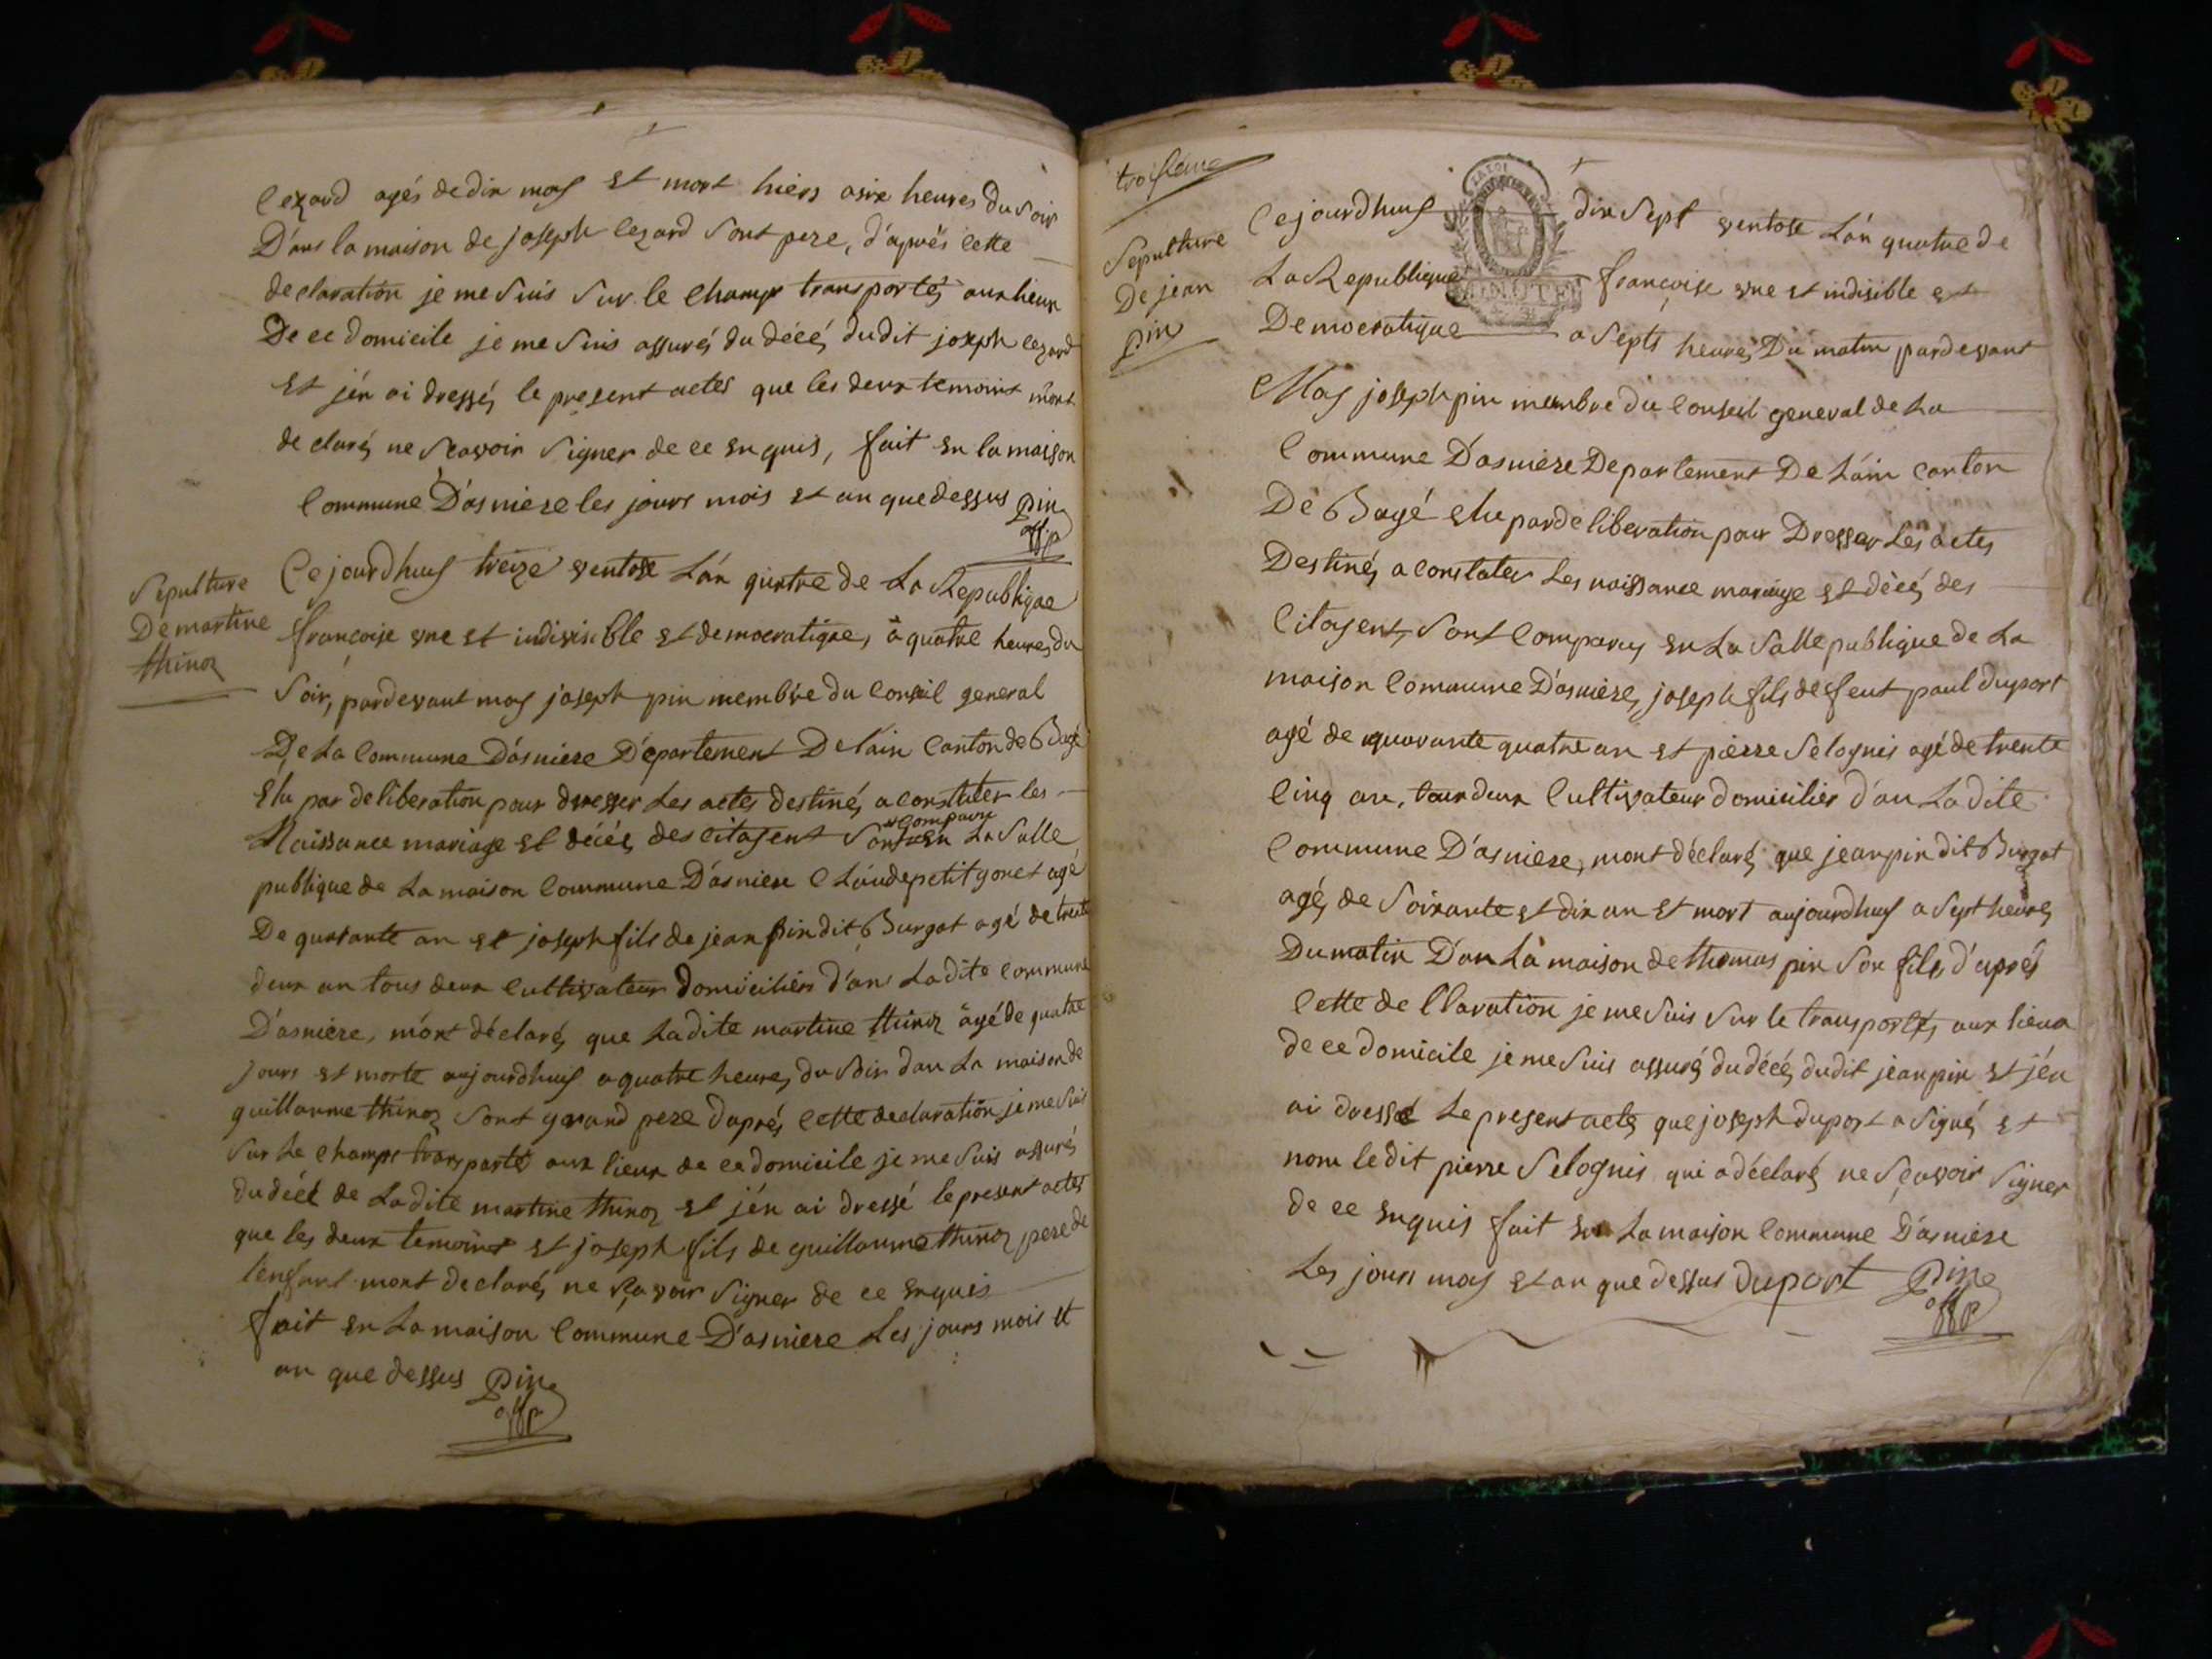 lezard agés de dix moy et mort hiers asixe heures du soir
Dans la maison de joseph lezard sont pere, d'aprés cette
declaration je me suis sur le champs transportés aux lieux
De ce domicile je me suis assurés du décé, dudit joseph lezard
et jén ai dressés le present actes que les deux temoins mont
declarés ne scavoir signer de ce enquis, fait en la maison
Commune D'asniere les jours mois et an que dessus Pin
offp
Sepulture
De martine
thinoz
Cejourdhuy treize ventose L'án quatre de La Republique
françoise une et indivisible et democratique, à quatre heures du
Soir, pardevant moy joseph pin membre du Conseil general
De La Commune D'asniere Departement De l'ain Canton de Bagé
Elu par deliberation pour dresser Les actes destinés a constater les
Naissance mariage et décés des citoyent Sont comparu en La Salle
publique de La maison Commune D'asniere Claude petitgonet agé
De quarante an et joseph fils de jean pin dit Burgat agé de trente
deux an tous deux Cultivateur Domiciliers d'an Ladite commune
D'asniere, mónt déclarés que Ladite martine thinoz âgé de quatre
jours et morte aujourdhuy a quatre heures du soir dan La maison de
guillaume thinoz sont grand pere d'aprés cette declaration je me suis
sur Le champs transporté aux lieux de ce domicile je me suis assurés
du décé de Ladite martine thinoz et jén ai dressé le present actes
que les deux temoins et joseph fils de guillaume thinoz pere de
lenfant mont declarés ne sçavoir signer de ce enquis
fait en La maison Commune D'asniere Les jours mois et
an que dessus Pin
offp
troisieme
Sepulture
De jean
pin
Cejourdhuy dix Sept ventose L'án quatre de
La Republique françoise une et indisible et
Democratique a Septs heures Du matin pardevant
Moy joseph pin membre du Conseil general de La
Commune D'asniere Departement De L'ain Canton
De Bagé elu par deliberation pour Dresser Les actes
Destinés a constater Les naissance mariage et décés des
Citoyent, Sont Comparus en La Salle publique de La
maison Commune D'asniere, joseph fils de feut paul duport
agé de quarante quatre an et pierre Selognis agé de trente
Cinq an, tour deux Cultivateur domicilier d'an Ladite
Commune D'asniere, mont déclarés que jean pin dit Burgat
agés de Soixante et dix an et mort aujourdhuy a Sept heures
Du matin Dan La maison de thomas pin Son fils, d'aprés
Cette de Claration je me suis sur le transportés aux lieux
de ce domicile je me suis assurés du décés dudit jean pin et jén
ai dressé Le present actes que joseph duport a signés et
nom ledit pierre Selognis qui a déclarés ne sçavoir signer
de ce enquis fait en La maison Commune D'asniere
Les jours moy et an que dessus duport Pin
offp